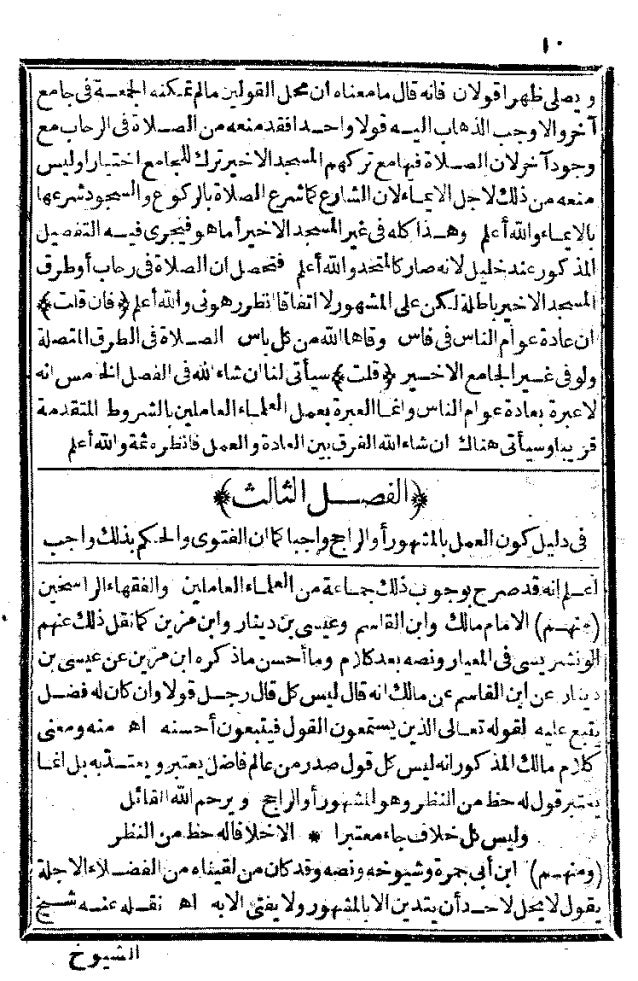 ١٠
ويصلى ظهرا قولان فانه قال ما معناه ان محل القولين مالم تمكنه الجمعة فى جامع
آخر والاوجب الذهاب اليه قولا واحدا فقد منعه من الصلاة فى الرحاب مع
وجود آخر لان الصلاة فيها مع تركهم المسجد الاخير ترك للجامع اختيارا وليس
منعه من ذلك لاجل الايماء لان الشارع كما شرع الصلاة بالركوع والسجود شرعها
بالايماء والله أعلم وهذا كله فى غير المسجد الاخير أما هو فيجرى فيه التفصيل
المذكور عند خليل لانه صار كالمتحد والله أعلم فتحصل ان الصلاة فى رحاب أوطرق
المسجد الاخير باطلة لكن على المشهور لا اتفاقا انظر رهونى والله أعلم ﴿فان قلت﴾
ان عادة عوام الناس فى فاس وقاها الله من كل باس الصلاة فى الطرق المتصلة
ولو فى غير الجامع الاخير ﴿قلت﴾ سيأتى لنا ان شاء الله فى الفصل الخامس انه
لا عبرة بعادة عوام الناس وانما العبرة بعمل العلماء العاملين بالشروط المتقدمة
قريبا وسيأتى هناك ان شاء الله الفرق بين العادة والعمل فانظره ثمة والله أعلم
﴿الفصل الثالث﴾
فى دليل كون العمل بالمشهور أو الراجح واجبا كما ان الفتوى والحكم بذلك واجب
اعلم انه قد صرح بوجوب ذلك جماعة من العلماء العاملين والفقهاء الراسخين
(منهم) الامام مالك وابن القاسم وعيسى بن دينار وابن مزين كما نقل ذلك عنهم
الونشريسى فى المعيار ونصه بعد كلام وما أحسن ما ذكره ابن مزين عن عيسى بن
دينار عن ابن القاسم عن مالك انه قال ليس كل ما قال رجل قولا وان كان له فضل
يتبع عليه لقوله تعالى الذين يستمعون القول فيتبعون أحسنه اه منه ومعنى
كلام مالك المذكور انه ليس كل قول صدر من عالم فاضل يعتبر ويعتد به بل انما
يعتبر قول له حظ من النظر وهو المشهور أو الراجح ويرحم الله القائل
وليس كل خلاف جاء معتبرا * الا خلافا له حظ من النظر
(ومنهم) ابن أبى جمرة وشيوخه ونصه وقد كان من لقيناه من الفضلاء الاجلة
يقول لا يحل لاحد أن يتدين الا بالمشهور ولا يفتى الا به اه نقله عنه شيخ
الشيوخ